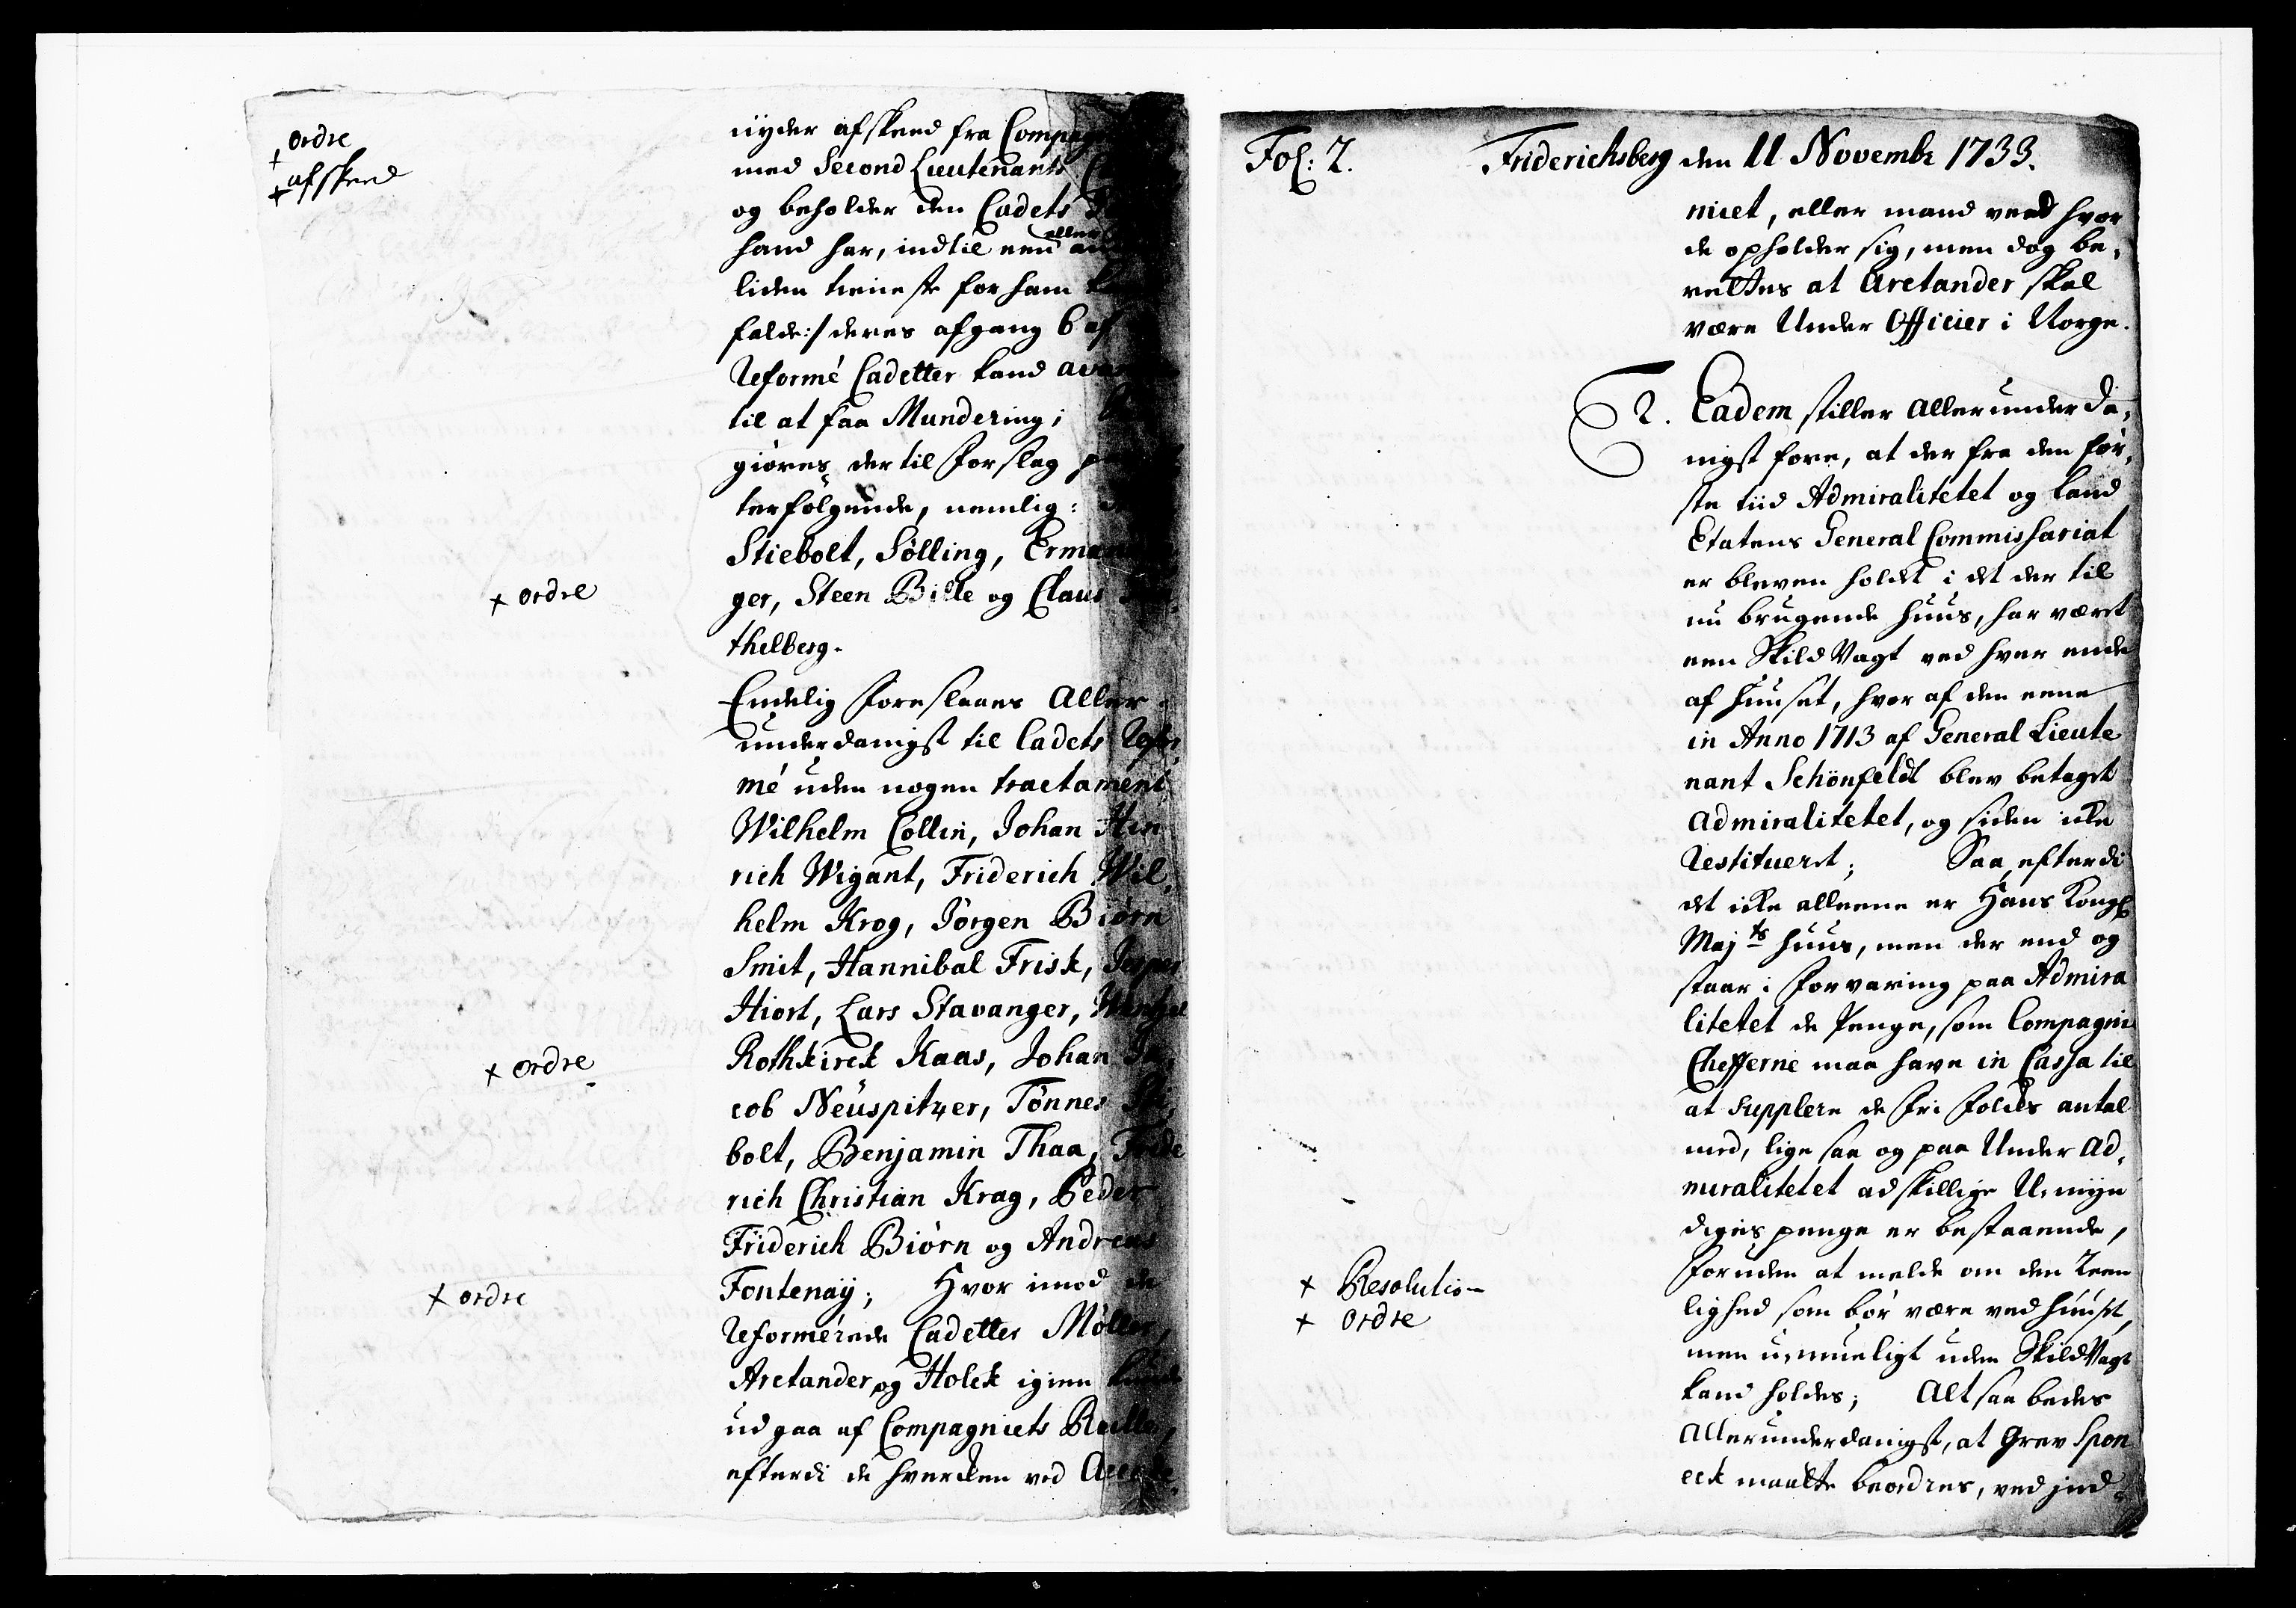 + ordre
+ afskeed
nyder afskeed fra
med Second Lieutenants
og beholder den Cadets
hand har, indtil een eller
liden tieneste for ham
falde:/ deres afgang 6 af
Reformé Cadetter kand
til at faa Mundering;
giøres der til Forslag
terfølgende, nemlig:
Stiebolt, Sølling,
+ ordre
ger, Steen Bille og Claus
thelberg.
Endelig foreslaaes Aller-
underdanigst til Cadets Refor,
mé uden nogen tractament
Wilhelm Collin, Johan Hin
rich Wigant, Friderich Wil,
helm Krog, Jørgen Biørn
Smit, Hannibal Frisk, Jesper
Hiort, Lars Stavanger, Wentzel
+ ordre
Rothkirck Kaas, Johan Ja,
cob Neuspitzer, Tønnes Sti,
bolt, Benjamin Thaa, Fride
rich Christian Krag, Peder
Friderich Biørn og Andreas
+ ordre
Fontenaÿ; Hvor imod de
Reformérede Cadetter Møller,
Aretander og Holck igien kunde
udgaa af Compagniets Rulle,
efterdi de hverken ved
Fol: 2. Friderichsberg den 11 Novembr 1733.
niet, eller mand veed hvor
de opholder sig, men dog be,
rettes at Aretander skal
være Under Officier i Norge.
2. Eadem stiller allerunderda,
nigst fore, at der fra den før,
ste tiid Admiralitetet og Land
Etatens General Commissariat
er bleven holdt i det der til
nu brugende Huus, har været
een Skild Vagt ved hver ende
af Huuset, hvor af den eene
in Anno 1713 af General Lieute
nant Schönfeldt blev betaget
Admiralitetet, og siden icke
Restitueret; Saa efterdi
det icke alleene er Hans Kongl
Majts Huus, men der end og
staar i Forvaring paa Admira
litetet de Penge, som Compagnie
Chefferne maa have in Cassa til
at Supplere de Fri Folkes antal
med, lige saa og paa Under Ad,
miralitetet adskillige U,myn
diges penge er bestaaende,
Foruden at melde om den Reen
+ Resolution
lighed som bør være ved Huuset,
+ Ordre
men u,mueligt uden Skild Vagt
kand holdes; Altsaa bedes
Allerunderdanigst, at Grev Spon
eck maatte beordres, ved ind-